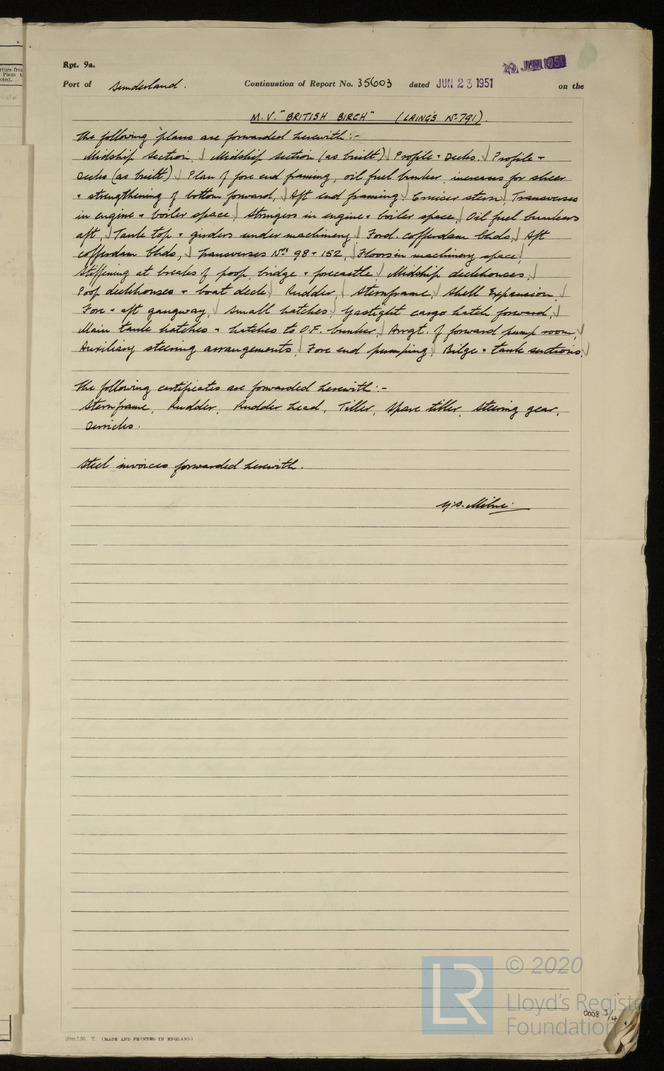 Rpt. 9a.
Port of Sunderland. Continuation of Report No. 35603 dated JUN 23 1951 on the
M.V. "BRITISH BIRCH" (LAING'S No 791).
The following plans are forwarded herewith:-
Midship section, Midship section (as built) Profile + Decks. Profile +
Decks (as built) Plan of fore end framing, oil fuel bunker, increases for sheer
+ strengthening of bottom forward, Aft end framing Cruiser stern Transverses
in engine + boiler space Stringers in engine + boiler space, Oil fuel bunkers
aft, Tank top + girders under machinery Ford. cofferdam blds, Aft
cofferdam blds, Transverses Nos 98 + 152, Floors in machinery space,
Stiffening at breaks of poop, bridge + forecastle Midship deckhouses,
Poop deckhouses + boat deck Rudder, Sternframe, Shell Expansion,
Fore + aft gangway, Small hatches, Gastight cargo hatch forward,
Main tank hatches + hatches to O.F. bunker, Arrgt. of forward pump room,
Auxiliary steering arrangements, Fore end pumping, Bilge + tank suctions.
The following certificates are forwarded herewith:-
Sternframe, Rudder, Rudder head, Tiller, Spare tiller, Steering gear,
Derricks.
Steel invoices forwarded herewith.
Milne
(MADE AND PRINTED IN ENGLAND)
0008 3/4
LR
© 2020
Lloyd's Register
Foundation